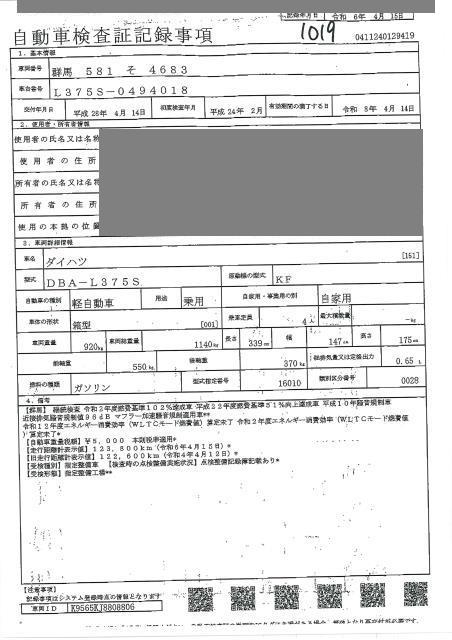 記録年月日 令和 6年 4月 15日
自動車検査証記録事項 1019 0411240129419
1. 基本情報
車両番号 群馬 581 そ 4683
車台番号 L375S-0494018
交付年月日 平成 28年 4月 14日 初度検査年月 平成 24年 2月 有効期間の満了する日 令和 8年 4月 14日
2. 使用者・所有者情報
使用者の氏名又は名称
使用者の住所
所有者の氏名又は名称
所有者の住所
使用の本拠の位置
3. 車両詳細情報
車名 ダイハツ [151]
型式 DBA-L375S 原動機の型式 KF
自動車の種別 軽自動車 用途 乗用 自家用・事業用の別 自家用
車体の形状 箱型 [001] 乗車定員 4人 最大積載量 -kg
車両重量 920kg 車両総重量 1140kg 長さ 339cm 幅 147cm 高さ 175cm
前軸重 550kg 後軸重 370kg 総排気量又は定格出力 0.65 L
燃料の種類 ガソリン 型式指定番号 16010 類別区分番号 0028
4. 備考
【群馬】 継続検査 令和2年度燃費基準102%達成車 平成22年度燃費基準51%向上達成車 平成10年騒音規制車
近接排気騒音規制値96dB マフラー加速騒音規制適用車*
令和12年度エネルギー消費効率(WLTCモード燃費値) 算定未了 令和2年度エネルギー消費効率(WLTCモード燃費値
)算定未了*
【自動車重量税額】¥5,000 本則税率適用*
【走行距離計表示値】123,800km(令和6年4月15日)*
【旧走行距離計表示値】122,600km(令和4年4月12日)*
【受検種別】指定整備車 【検査時の点検整備実施状況】点検整備記録簿記載あり*
【受検形態】指定整備工場*
【注意事項】
記録事項はシステム登録時点の情報となります
車両ID K9565KJ8808806